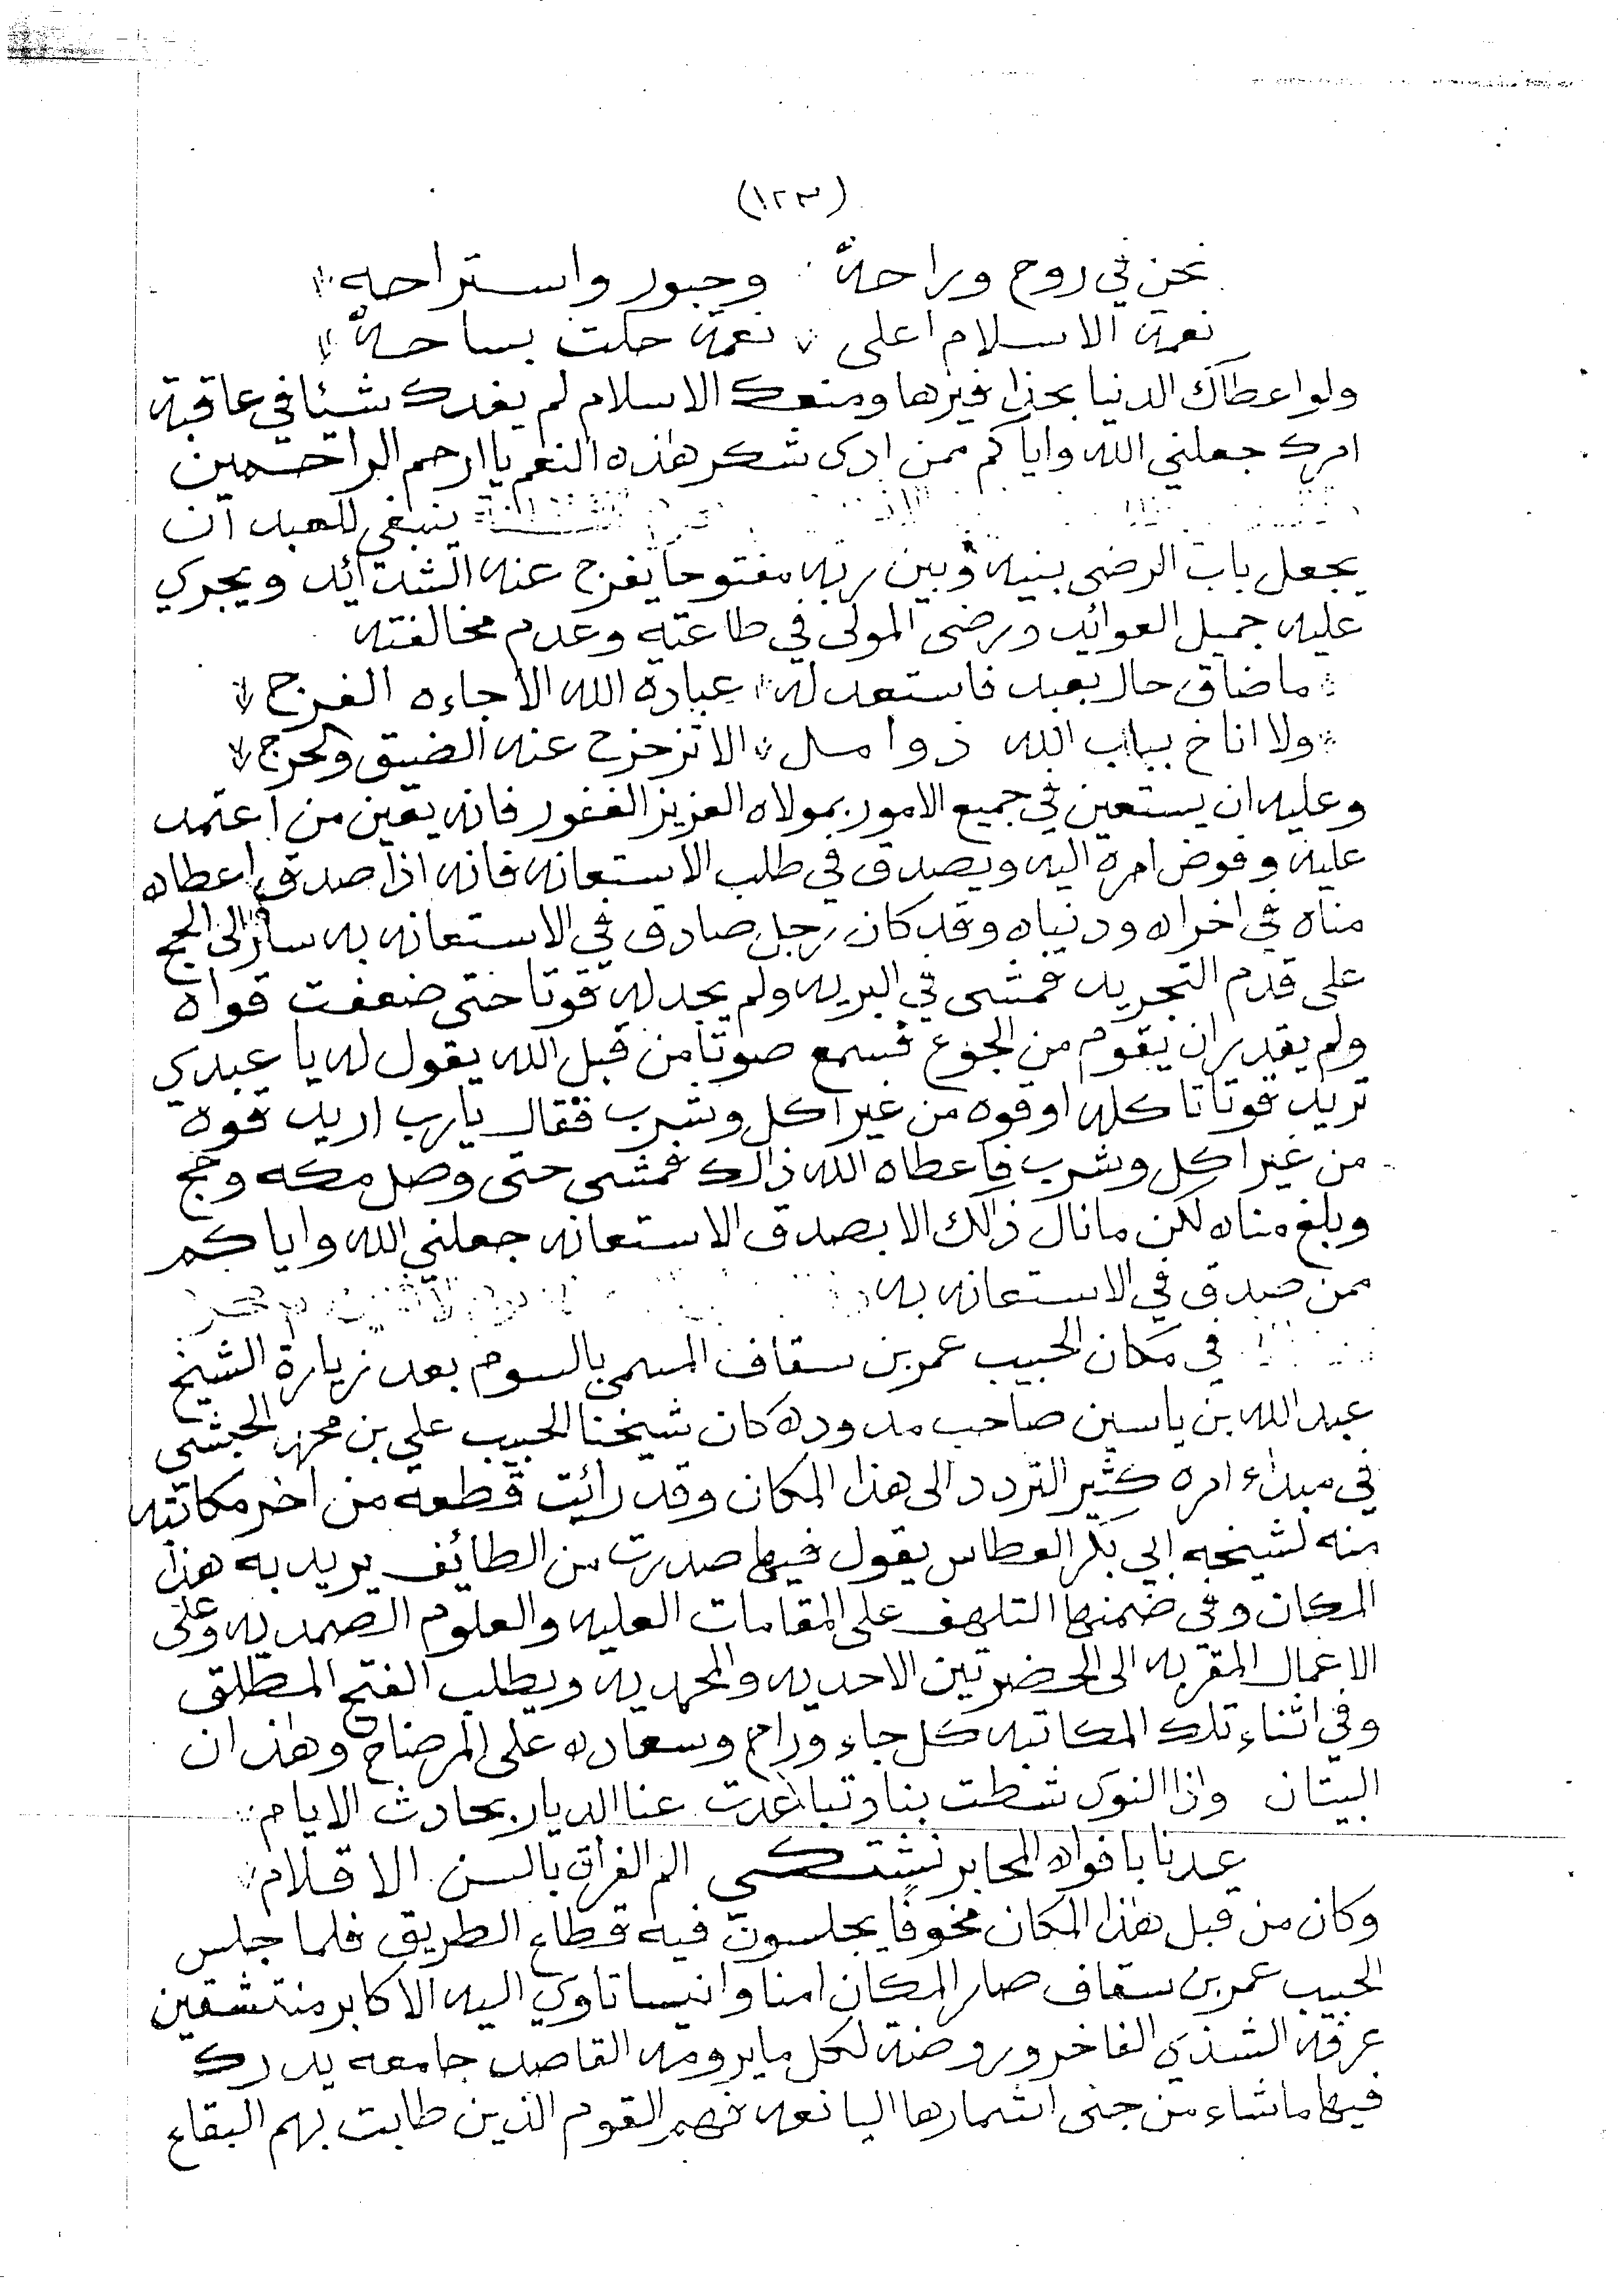 (١٢٣)
نحن في روح وراحةً وحبور واستراحه
نعمة الاسلام اعلى نعمة حلت بساحةً
ولو اعطاك الدنيا بحذافيرها ومنعك الاسلام لم يفدك شيئا في عاقبة
امرك جعلني الله واياكم ممن ادى شكر هذه النعم يا ارحم الراحمين
ينبغي للعبد ان
يجعل باب الرضى بينه وبين ربه مفتوحا يفرج عنه الشدائد ويجري
عليه جميل العوائد ورضى المولى في طاعته وعدم مخالفته
ما ضاق حال بعبد فاستعد له عبادة الله الا جاءه الفرج
ولا اناخ بباب الله ذوامل الا تزحزح عنه الضيق والحرج
وعليه ان يستعين في جميع الامور بمولاه العزيز الغفور فانه يعين من اعتمد
عليه وفوض امره اليه ويصدق في طلب الاستعانه فانه اذا صدق اعطاه
مناه في اخراه ودنياه وقد كان رجل صادق في الاستعانه به سائر الى الحج
على قدم التجريد فمشى في البريه ولم يجد له قوتا حتى ضعفت قواه
ولم يقدر ان يقوم من الجوع فسمع صوتا من قبل الله يقول له يا عبدي
تريد قوتا تاكله او قوه من غير اكل وشرب فقال يارب اريد قوه
من غير اكل وشرب فاعطاه الله ذالك فمشى حتى وصل مكه وحج
وبلغ مناه لكن ما نال ذالك الا بصدق الاستعانه جعلني الله واياكم
ممن صدق في الاستعانه به
في مكان الحبيب عمر بن سقاف المسمى بالسوم بعد زيارة الشيخ
عبد الله بن ياسين صاحب مدوده كان شيخنا الحبيب علي بن محمد الحبشي
في مبداء امره كثير التردد الى هذا المكان وقد رائت قطعه من اخر مكاتبه
منه لشيخه ابي بكر العطاس يقول فيها صدرت من الطائف يريد به هذا
المكان وفي ضمنها التلهف على المقامات العليه والعلوم الصمديه وعلى
الاعمال المقربه الى الحضرتين الاحديه والمحمديه ويطلب الفتح المطلق
وفي اثناء تلك المكاتبه كل جاء وراح وسعاده على المرضاح وهذان
البيتان واذا النوى شطت بنا وتباعدت عنا الديار بحادث الايام
عدنا بافواه المحابر نشتكي الم الفراق بالسن الاقلام
وكان من قبل هذا المكان مخوفًا يجلسون فيه قطاع الطريق فلما جلس
الحبيب عمر بن سقاف صار المكان امنا وانيسا تاوي اليه الاكابر منتشقين
عرفه الشذي الفاخر وروضة لكل ما يرومه القاصد جامعه يدرك
فيها ماشاء من جنى اثمارها اليانعه فهم القوم الذين طابت بهم البقاع